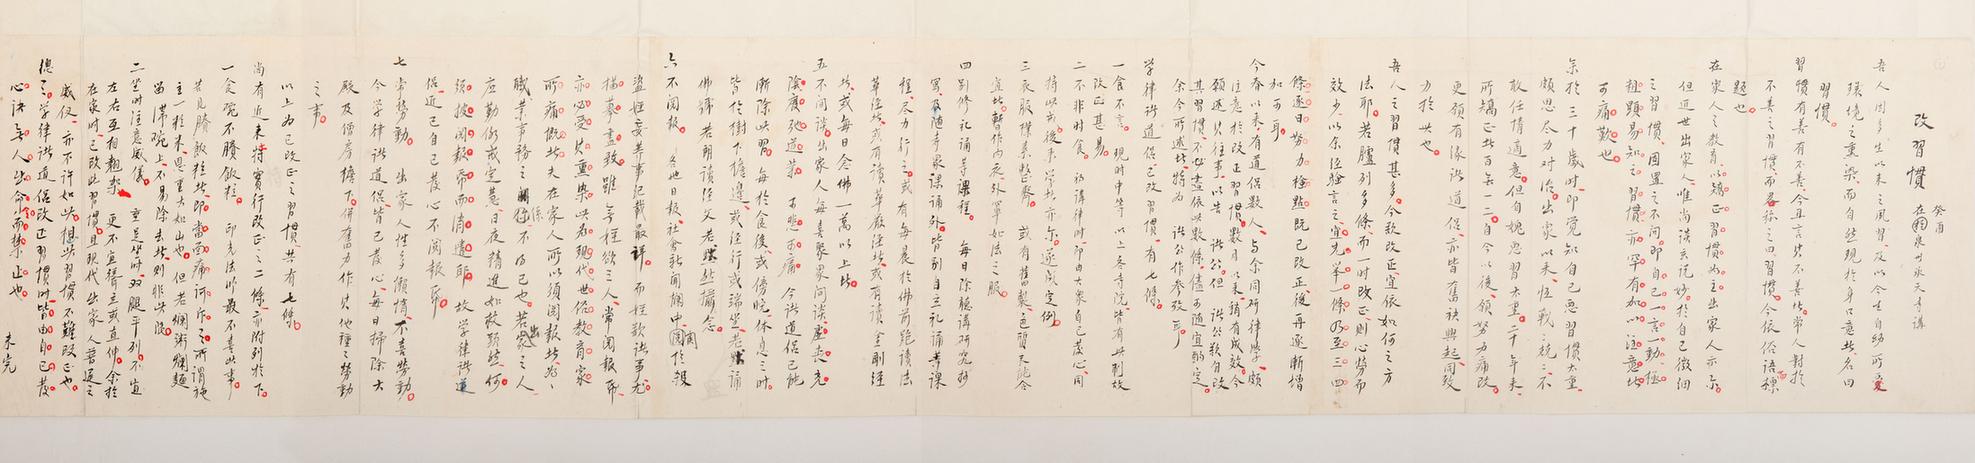 改習慣
癸酉
在泉州承天寺講
吾人因多生以來之夙習及以今生自幼所受
環境之熏染而自然現於身口意者名曰
習慣
習慣有善有不善今且言其不善者常人對於
不善之習慣而畧稱之曰習慣今依俗語標
題也
在家人之教育以矯正習慣為主出家人亦尔
但近世出家人唯尚談玄說妙於自己微細
之習慣固置之不問即自己一言一動極
粗顯易知之習慣亦罕有加以注意者
可痛歎也
余於三十歲時即覺知自己惡習慣太重
頗思盡力對治出家以來恒戰戰兢兢不
敢任情適意但自愧惡習太重二十年來
所矯正者百無一二自今以後願努力痛改
更願有緣諸道侶亦皆奮袂興起同致
力於此也
吾人之習慣甚多今欲改正宜依如何之方
法耶若臚列多條而一時改正則心勞而
效少以余經驗言之宜先舉一條乃至三四
條逐日努力檢點既已改正後再逐漸增
加可耳
今春以來有道侶數人與余同研律學頗
注意於改正習慣數月以來稍有成效今
願述其往事以告諸公但諸公欲自改
其習慣不必盡依此數條儘可隨宜酌定
余今所述者特為諸公作參攷耳
學律諸道侶已改習慣有七條
一食不言 現時中等以上各寺院皆有此制故
改正甚易
二不非時食 初講律時即由大衆自己發心同
持此戒後來學者亦尔遂成定例
三衣服樸素整齊 或有舊製色質未能合
宜者暫作內衣外罩如法之服
四別修禮誦等課程 每日除聽講研究抄
寫及隨寺衆課誦外皆別自立禮誦等課
程盡力行之或有每晨於佛前跪讀法
華經者或有讀華嚴經者或有讀金剛經
者或每日念佛一萬以上者
五不閒談 出家人每喜聚衆閒談虛喪光
陰廢弛道業可悲可痛今諸道侶已能
漸除此習每於食後或傍晚休息之時
皆於樹下檐邊或經行或端坐若默誦
佛號若朗讀經文若默然攝念
六不閱報 各地日報社會新聞欄中關於殺
盜婬妄等事記載最詳而婬欲諸事尤
描摹盡致雖無婬欲之人常閱報紙
亦必受其熏染此為現代世俗教育家
所痛慨者 夫在家人所以須閱報者為
職業事務之關係不得已也若出
家之人
應勤修戒定慧日夜精進如救頭然何
須披閱報紙而消遣耶 故學律諸道
侶近已自己發心不閱報紙
七常勞動 出家人性多懶惰不喜勞動
今學律諸道侶皆已發心每日掃除大
殿及僧房檐下併奮力作其他種種勞動
之事
以上為已改正之習慣共有七條
尚有近來特實行改正之二條亦附列於下
一食碗不賸飯粒 印光法師最不喜此事
若見賸飯粒者即當面痛訶斥之所謂施
主一粒米恩重大如山也 但若爛粥爛麵
留滯碗上不易除去者則非此限
二坐時注意威儀 垂足坐時雙腿平列不宜
左右互相翹架更不宜聳立或直伸余於
在家時已改此習慣且現代出家人普通之
威儀亦不許如此想此習慣不難改正也
總之學律諸道侶改正習慣時皆由自己發
心決無人出命令而禁止也
未完